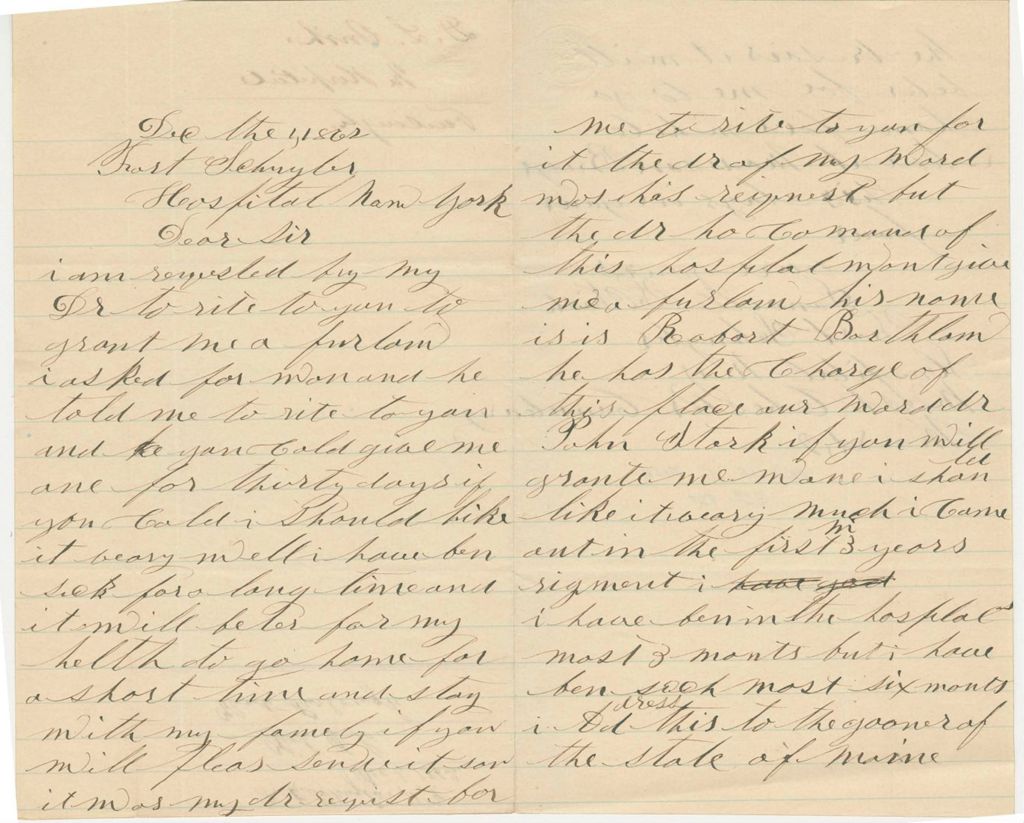 Dec the 4, 1862
Fort Schuyler
Hospital Naw York
Dear Sir
i am reqested by my
Dr to rite to you to
grant me a furlam
i asked for wan and he
told me to rite to you
and you Cold give me
one for thirty days if
you Cold i Should like
it veary well i have ben
sick for a long time and
it will beter for my
helth to go home for
a short time and stay
with my famely if you
will pleas send it
it was my dr reqist for
me to rite to you for
it the dr of my Ward
was his reiqnest but
the dr ho Comand of
this hospital wont give
me a furlam his name
is is Robort Barthlam
he has the Charge of
this place our Ward dr
John Stork if you will
grante me wane i shauld
like it veary much i Came
out in the first m 3 years
rigment i have god
i have ben in the hospital
most 3 monts but i have
ben sick most six monts
i Address this to the gooner of
the state of maine